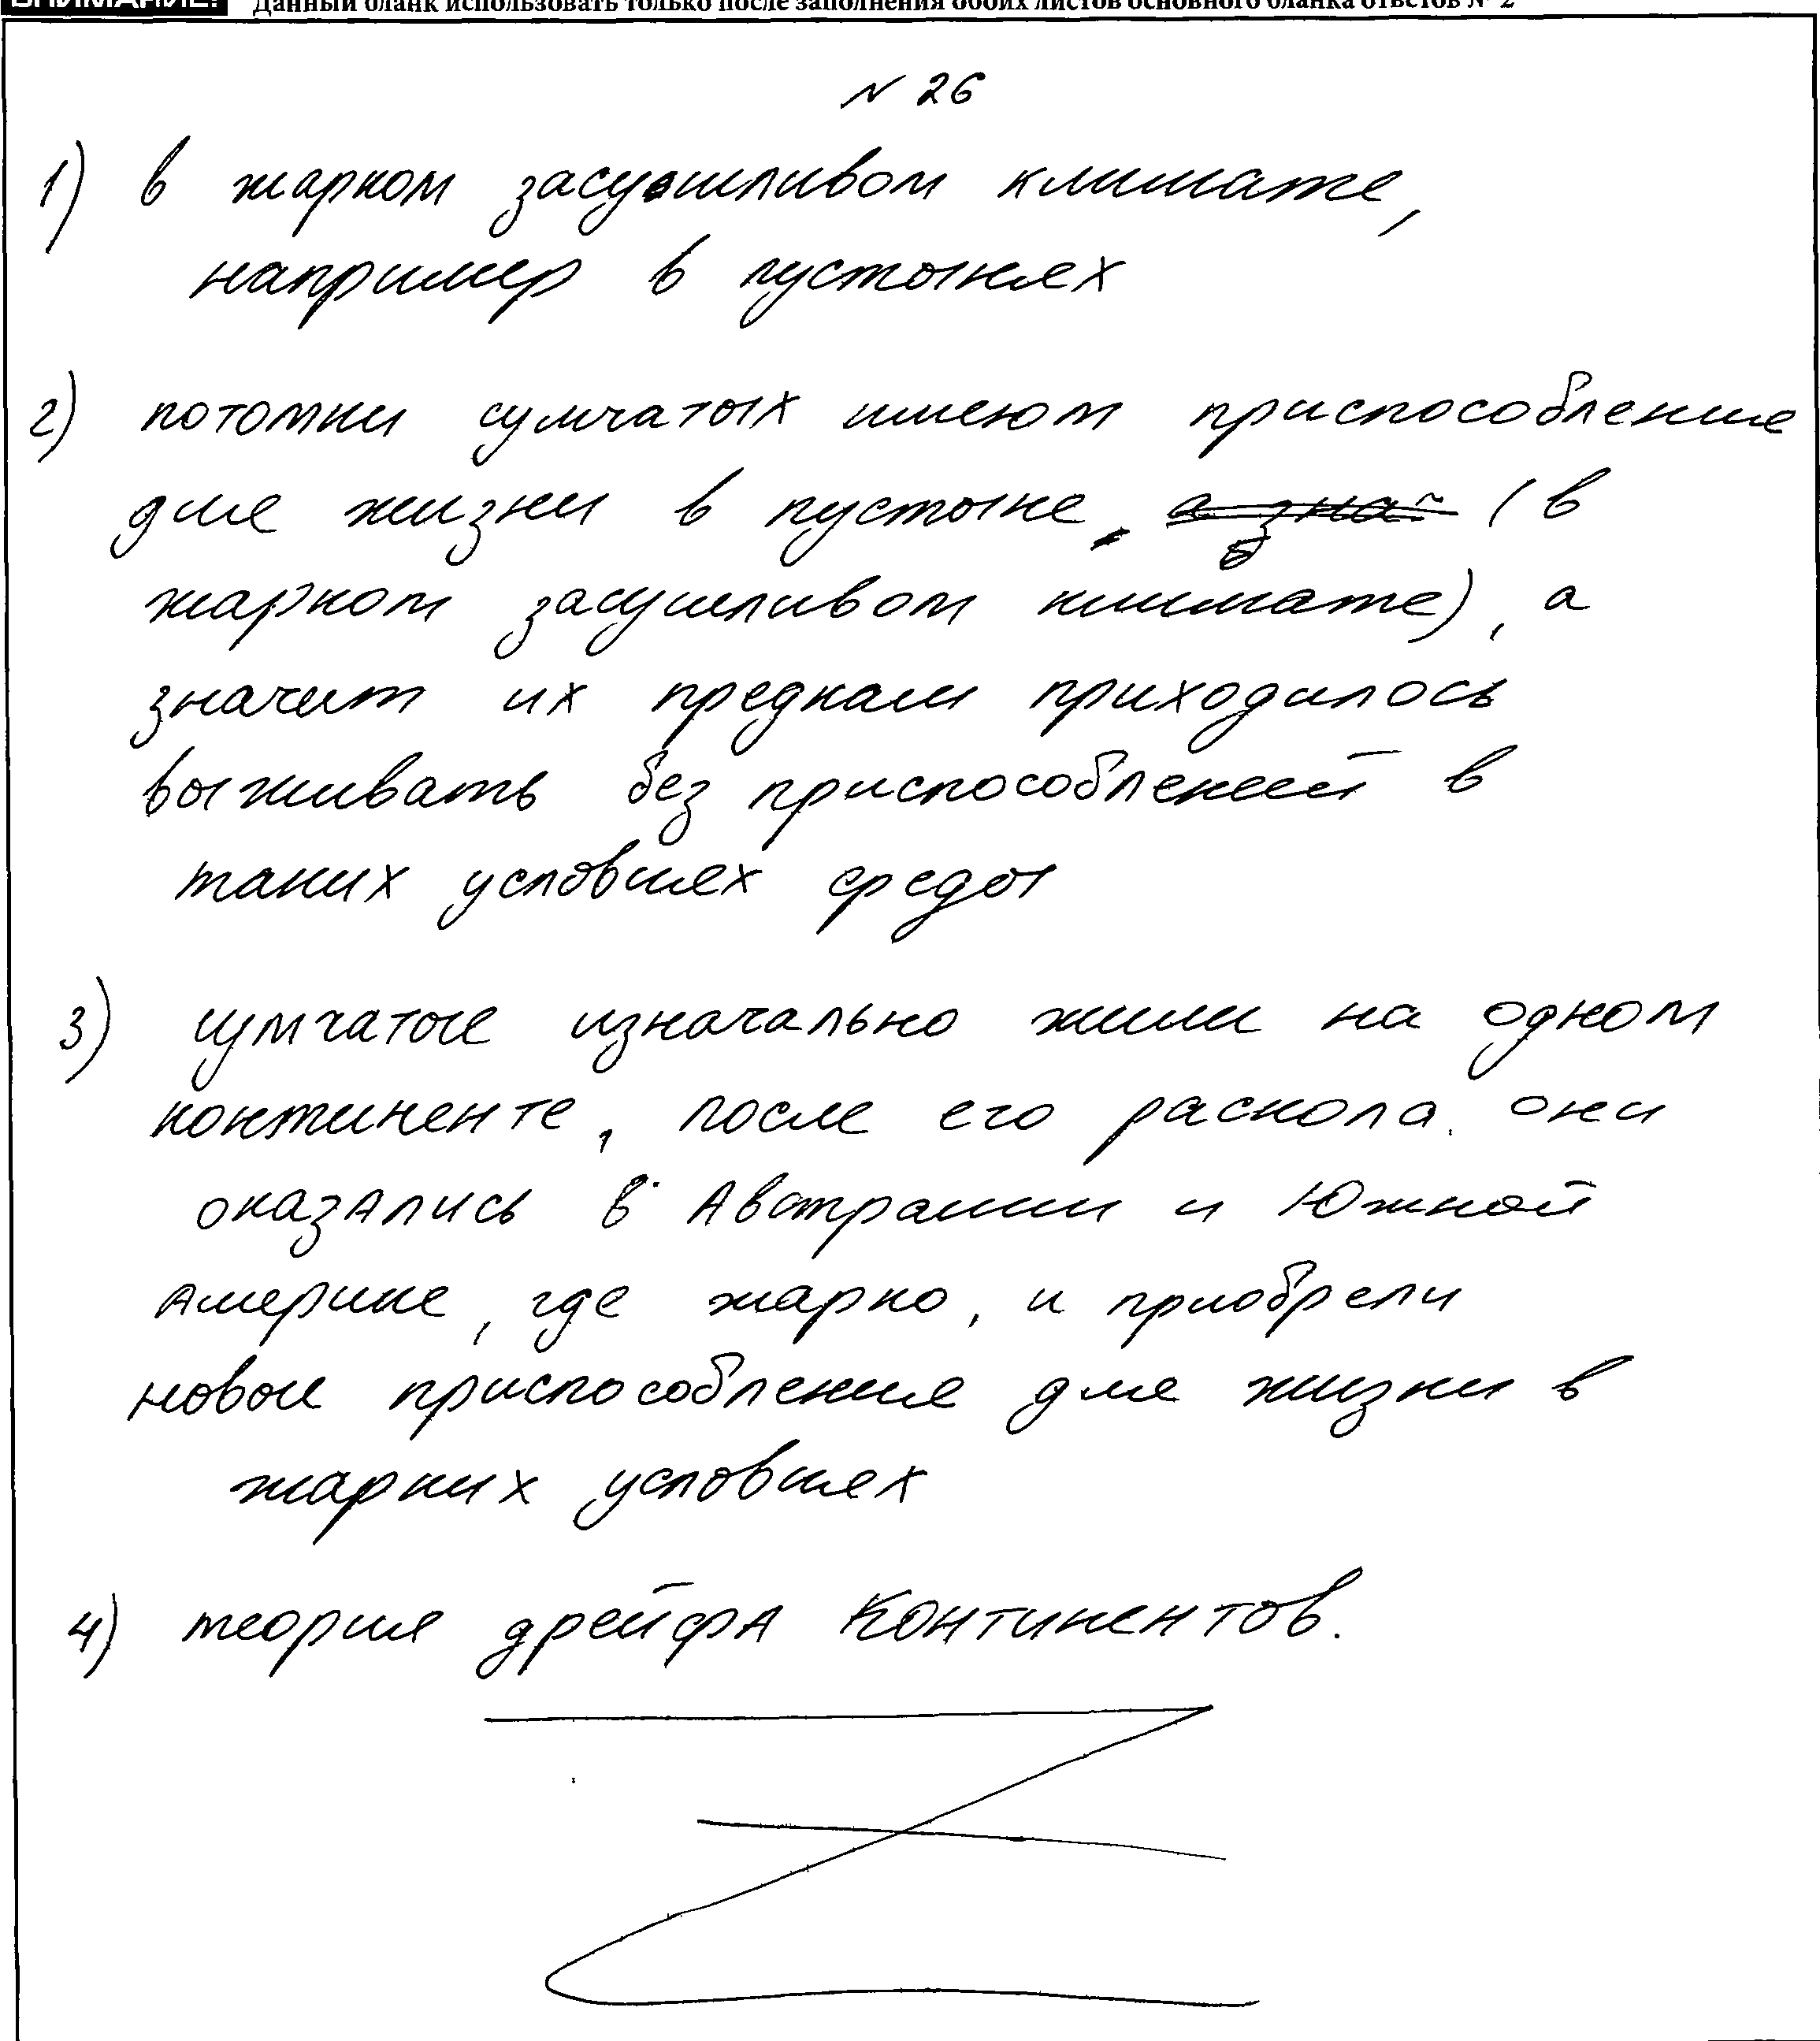 ВНИМАНИЕ! Данный бланк использовать только после заполнения обоих листов основного бланка ответов № 2
№ 26
1) в жарком засушливом климате,
например в пустынях
2) потомки сумчатых имеют приспособление
для жизни в пустыне (в
жарком засушливом климате), а
значит их предкам приходилось
выживать без приспособлений в
таких условиях среды
3) сумчатые изначально жили на одном
континенте, после его раскола они
оказались в Австралии и Южной
Америке, где жарко, и приобрели
новые приспособления для жизни в
жарких условиях
4) теория дрейфа континентов.